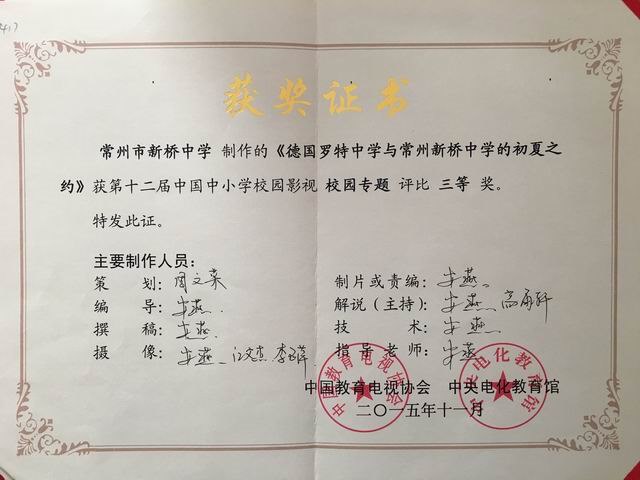 获奖证书
常州市新桥中学 制作的《德国罗特中学与常州新桥中学的初夏之
约》获第十二届中国中小学校园影视 校园专题 评比 三等 奖。
特发此证。
主要制作人员：
策 划：周文荣 制片或责编：朱燕
编 导：朱燕 解说（主持）：朱燕
撰 稿：朱燕 技 术：朱燕
摄 像：朱燕 指导老师：朱燕
中国教育电视协会 中央电化教育馆
中国教育电视协会 中央电化教育馆
二〇一五年十一月